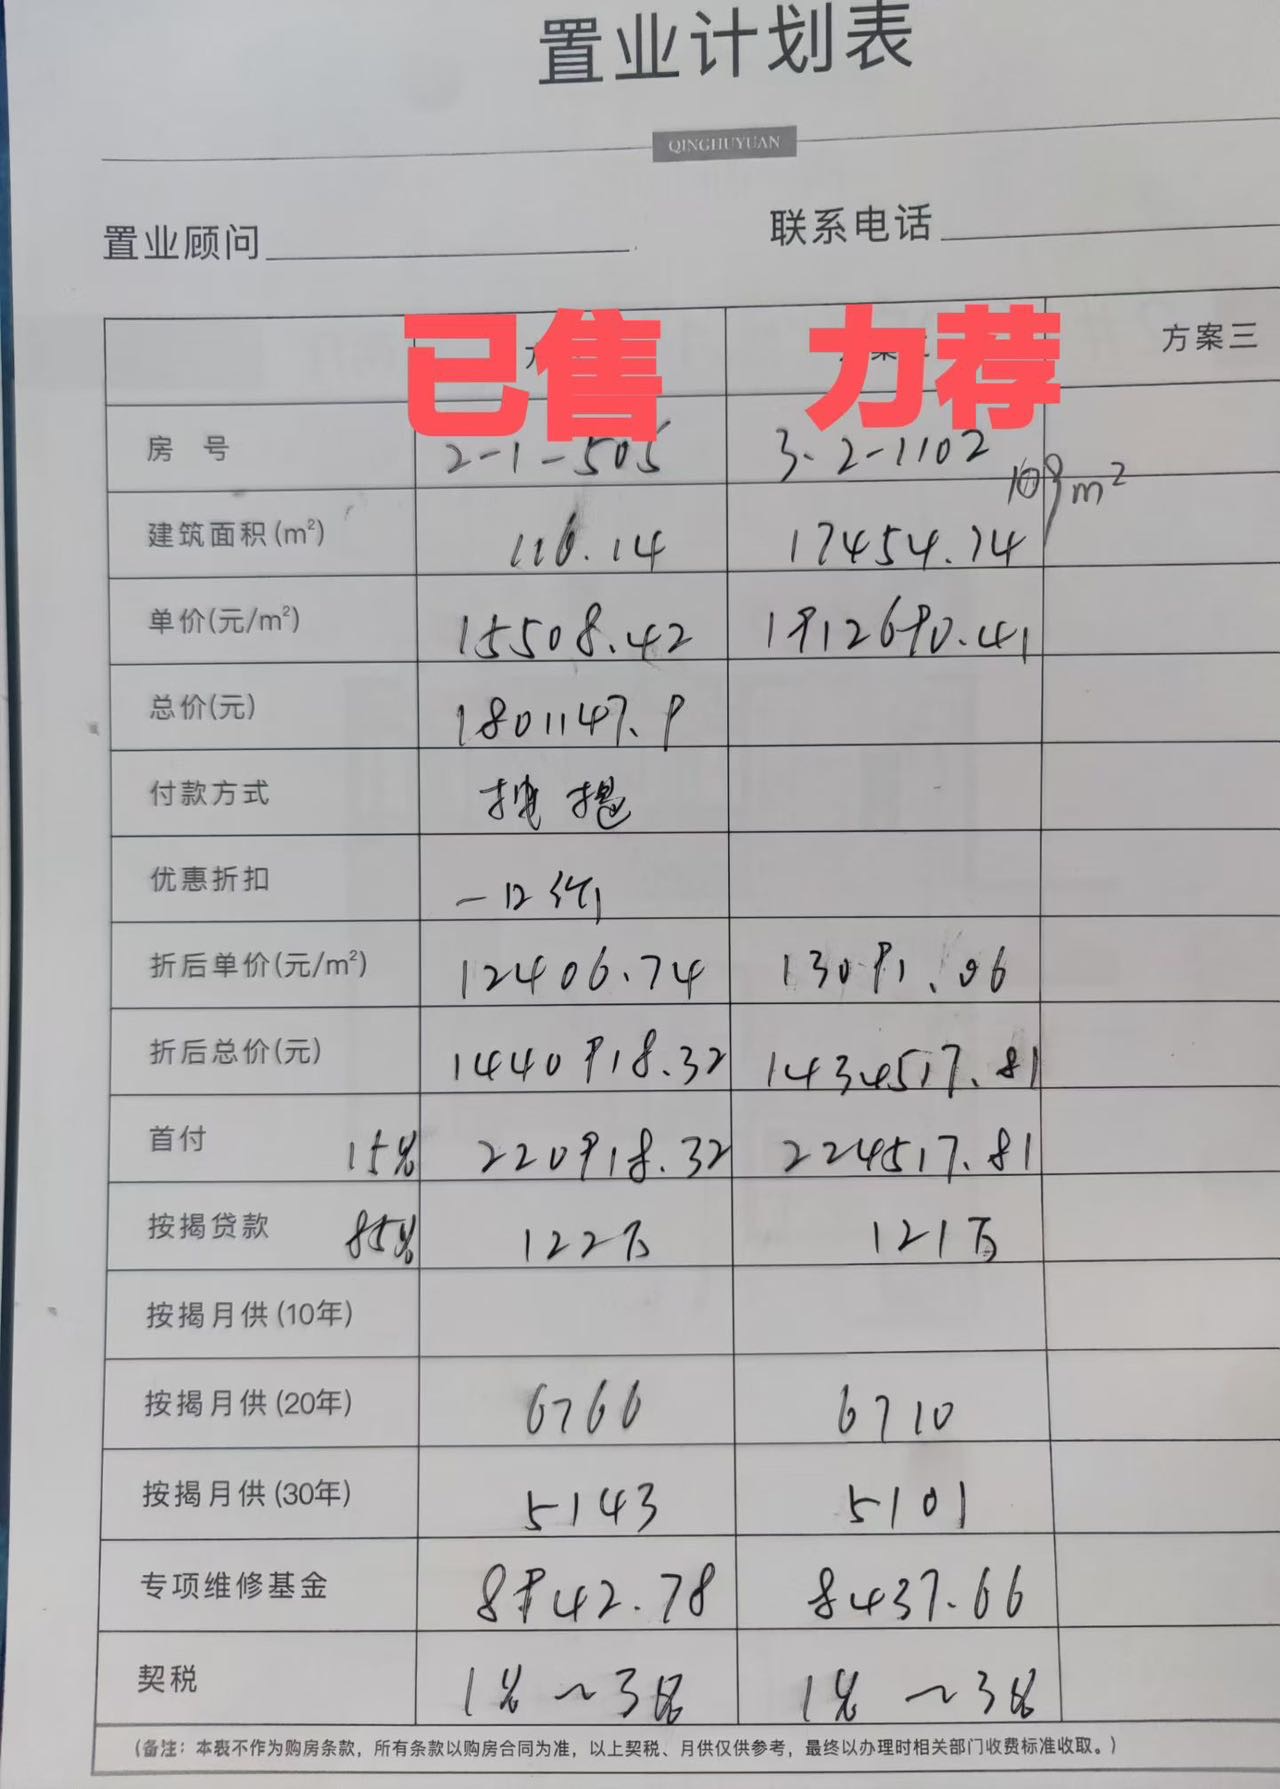 置业计划表
QINGHUYUAN
置业顾问 联系电话
已售 力荐 方案三
房 号 2-1-505 3-2-1102
109m²
建筑面积(m²) 116.14 17454.74
单价(元/m²) 15508.42 1912690.41
总价(元) 1801147.9
付款方式 按揭
优惠折扣 一口价
折后单价(元/m²) 12406.74 13091.06
折后总价(元) 1440918.32 1434517.81
首付 15% 220918.32 224517.81
按揭贷款 85% 122万 121万
按揭月供(10年)
按揭月供(20年) 6766 6710
按揭月供(30年) 5143 5101
专项维修基金 8942.78 8437.66
契税 1%~3% 1%~3%
(备注：本表不作为购房条款，所有条款以购房合同为准，以上契税、月供仅供参考，最终以办理时相关部门收费标准收取。)